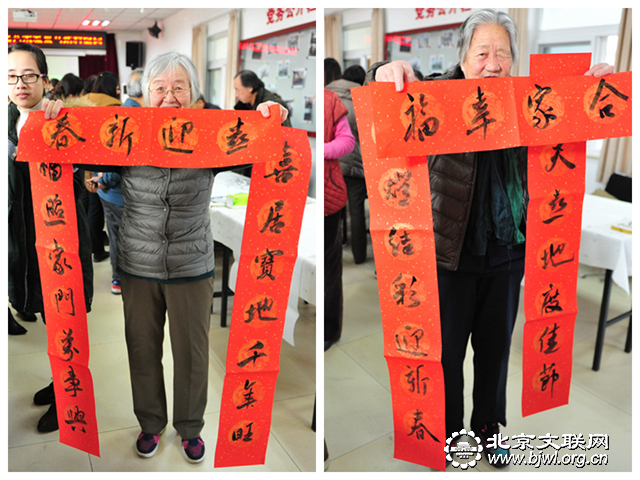 党务公开
喜迎新春
喜居寶地千年旺
福照家門萬事興
党务公开
合家幸福
天喜地度佳節
燈結彩迎新春
北京文联网
www.bjwl.org.cn